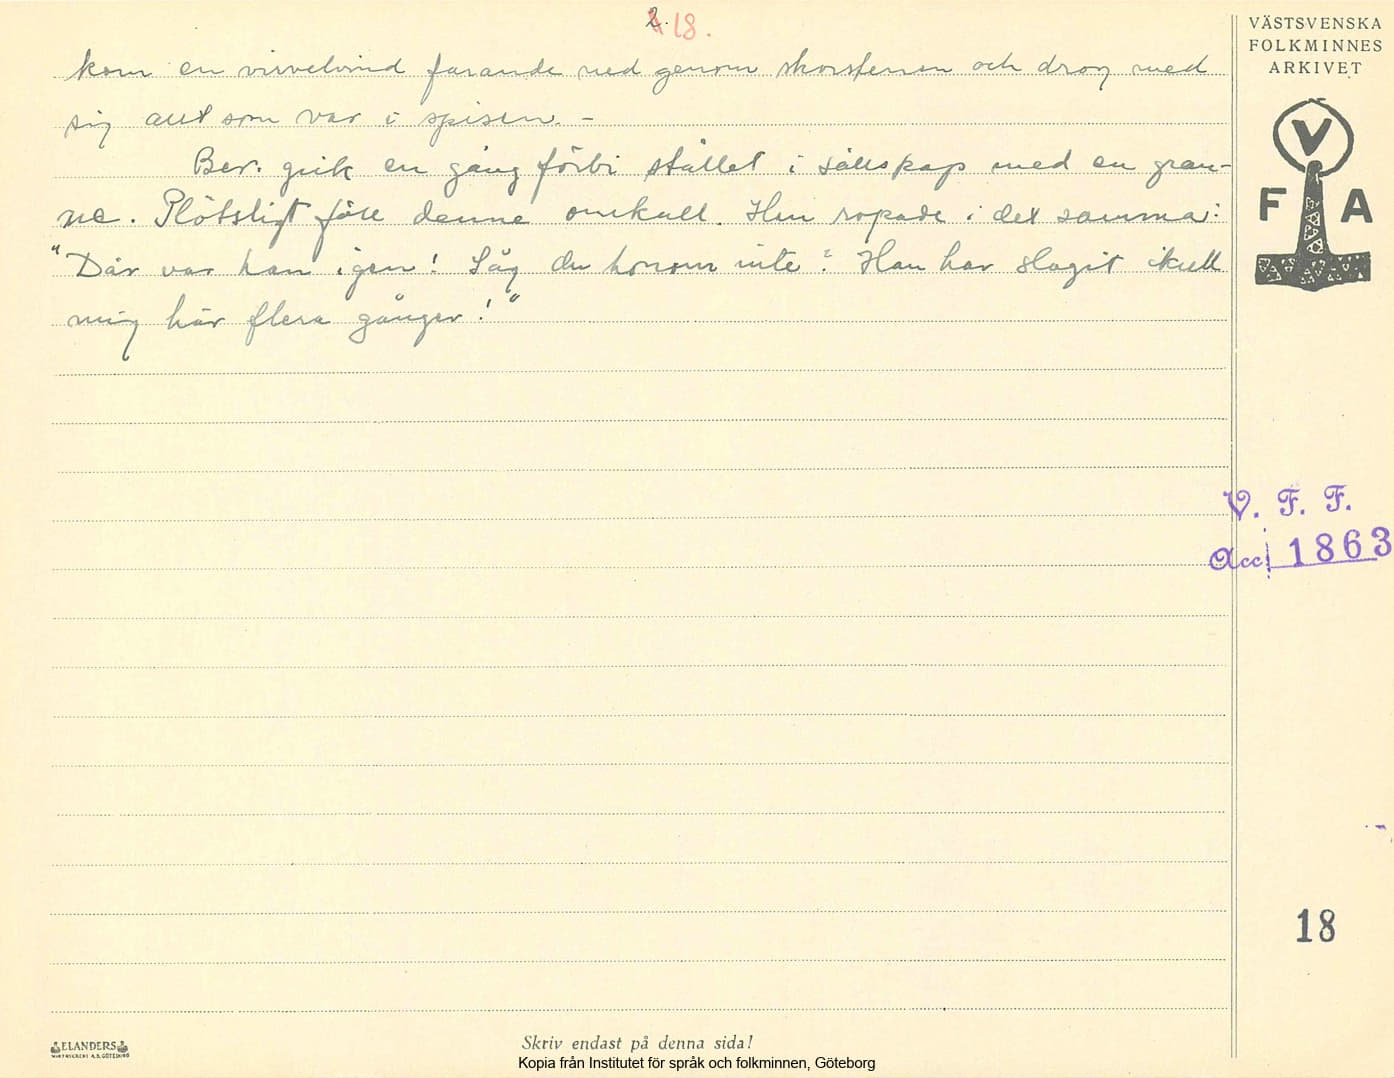 2.
18.
kom en virvelvind farande ned genom skorstenen och drog med
sig allt som var i spisen. –
Ber. gick en gång förbi stället i sällskap med en gran-
ne. Plötsligt föll denne omkull. Hon ropade i det samma:
"Där var han igen! Såg du honom inte? Han har slagit ikull
mig här flera gånger!"
VÄSTSVENSKA
FOLKMINNES
ARKIVET
V
F A
V. F. F.
Acc. 1863
18
ELANDERS
Skriv endast på denna sida!
Kopia från Institutet för språk och folkminnen, Göteborg